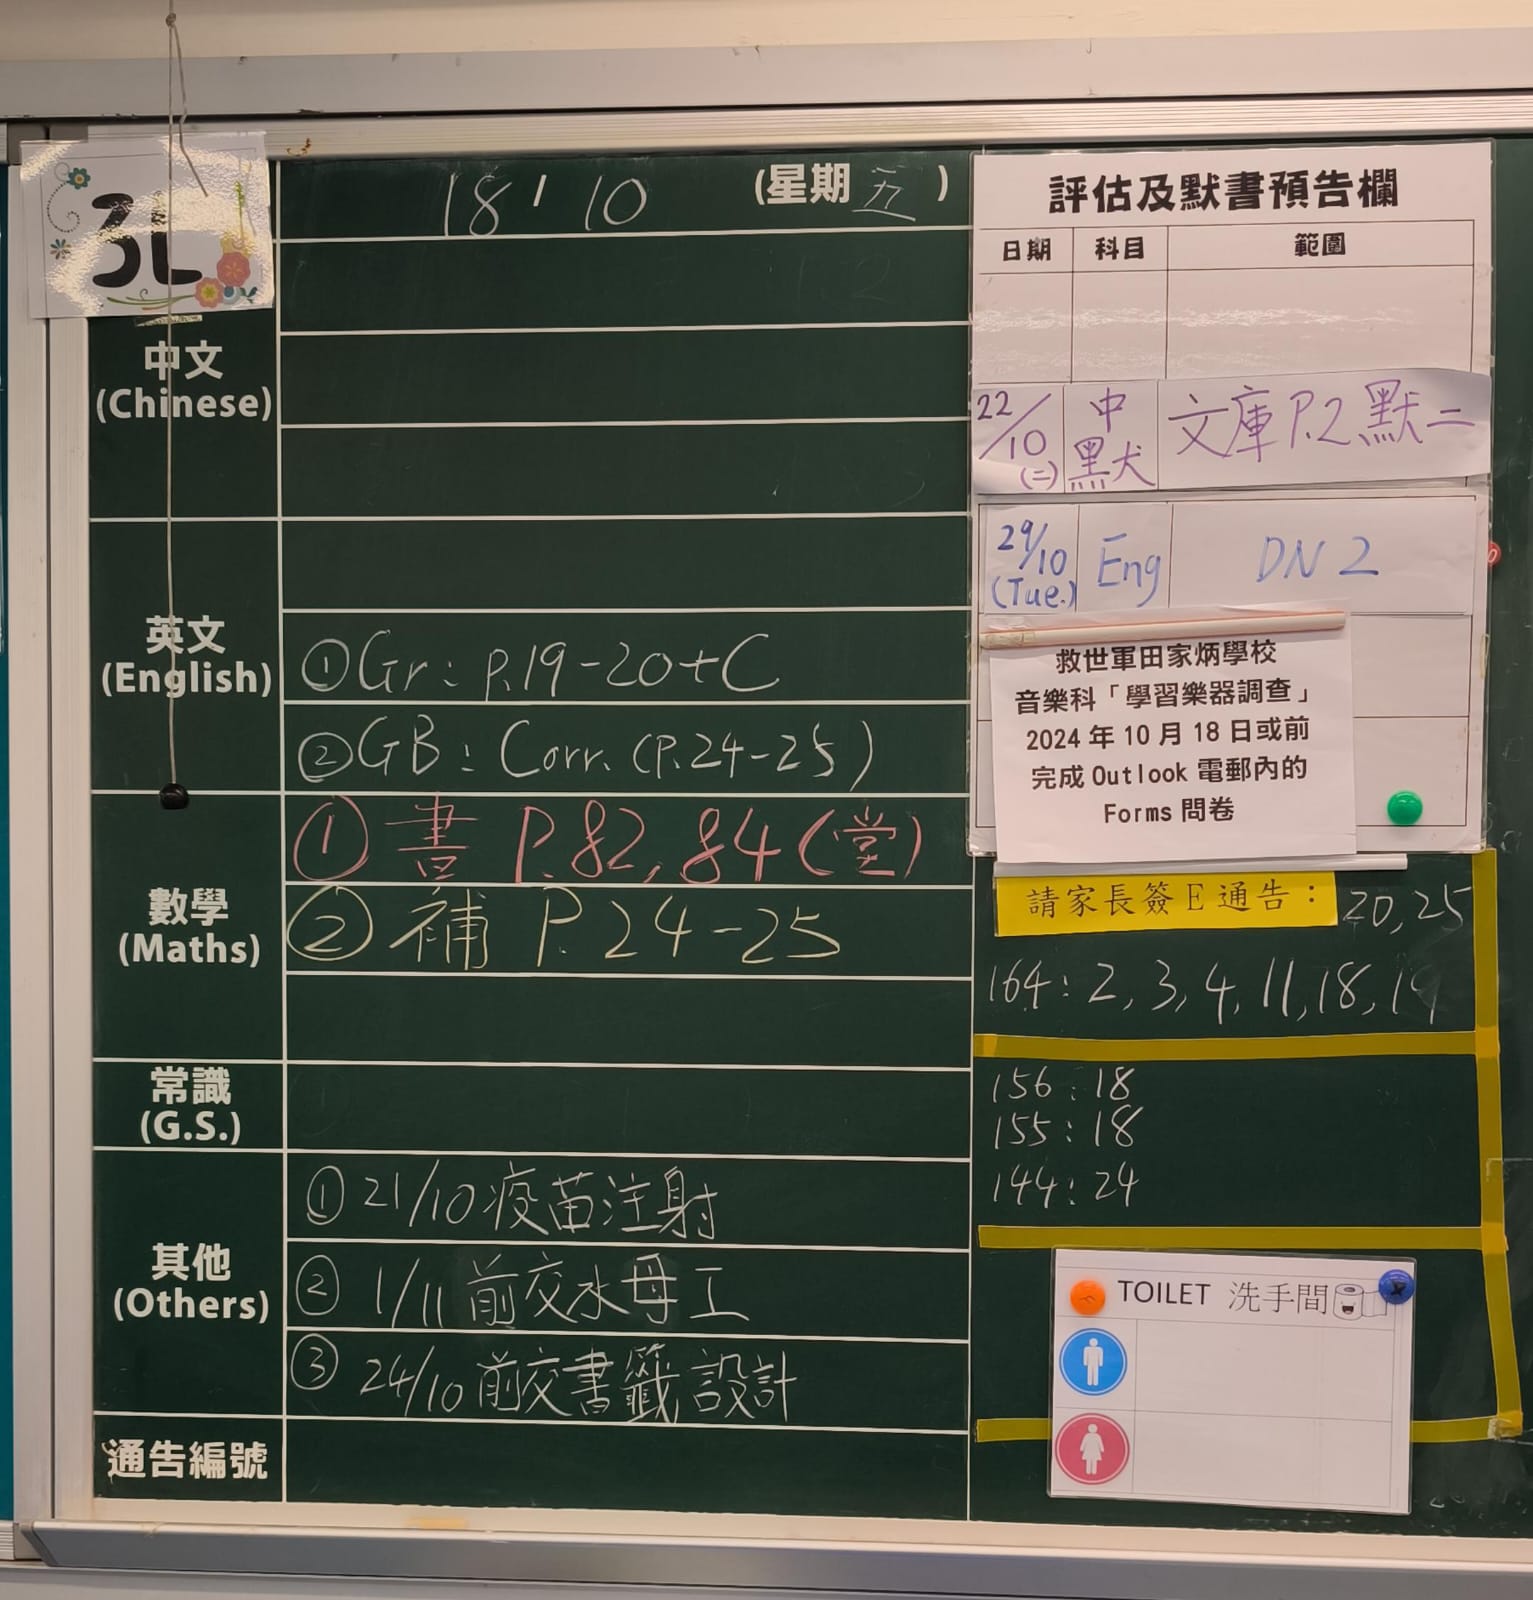 3L
18 / 10 (星期 五 )
中文
(Chinese)
英文
(English)
①Gr: P.19-20+C
②GB: Corr. (P.24-25)
數學
(Maths)
① 書 P.82, 84 (堂)
② 補 P.24-25
常識
(G.S.)
其他
(Others)
① 21/10 疫苗注射
② 1/11 前交水母工
③ 24/10 前交書籤設計
通告編號
評估及默書預告欄
日期 科目 範圍
22/10 (二) 中默 文庫 P.2 默二
29/10 (Tue.) Eng DN 2
救世軍田家炳學校
音樂科「學習樂器調查」
2024 年 10 月 18 日或前
完成 Outlook 電郵內的
Forms 問卷
請家長簽 E 通告： 20, 25
164: 2, 3, 4, 11, 18,
156: 18
155: 18
144: 24
TOILET 洗手間